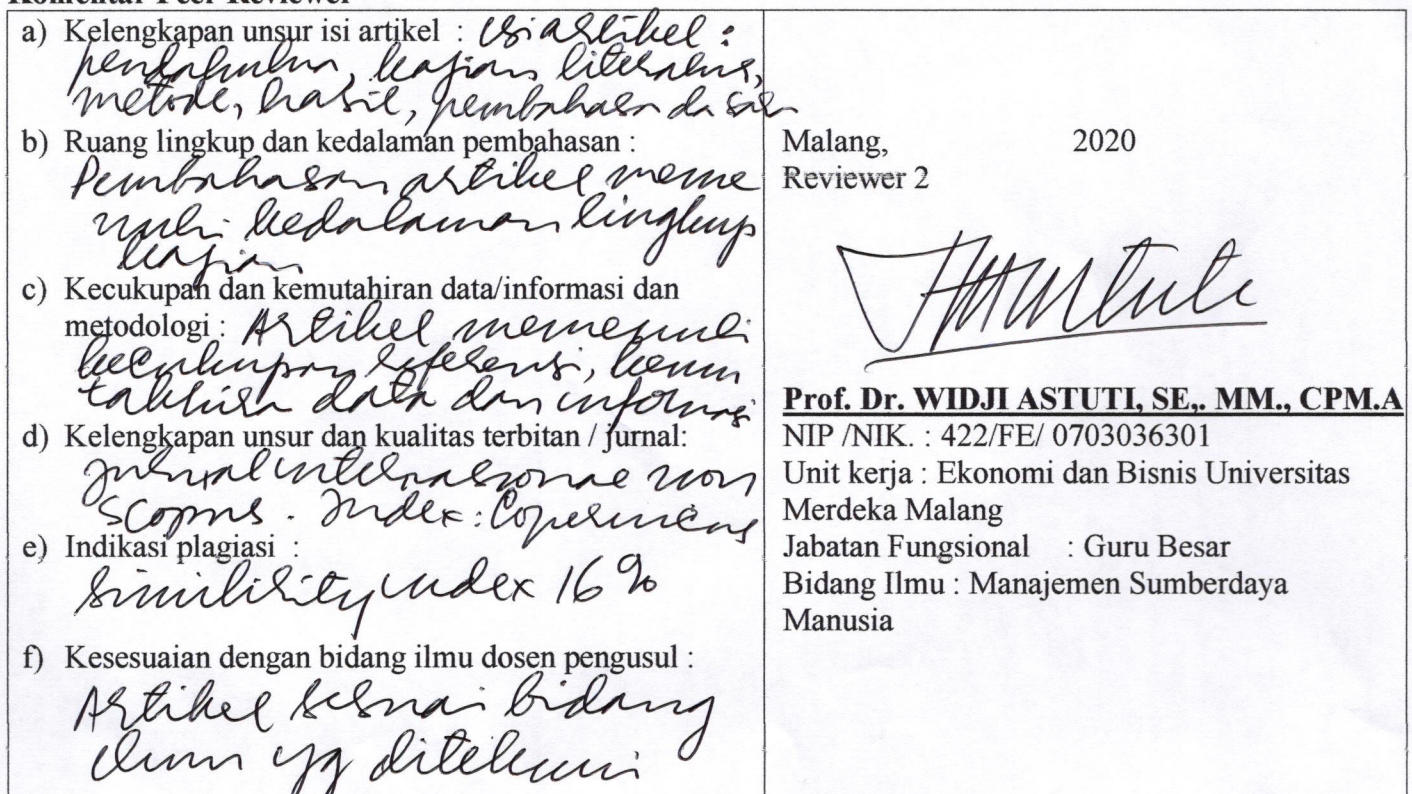 a) Kelengkapan unsur isi artikel : isi artikel :
pendahulun, kajian literatur,
metode, hasil, pembahasan da saran
b) Ruang lingkup dan kedalaman pembahasan :
Pembahasan artikel meme
nuhi kedalaman lingkup
kajian
c) Kecukupan dan kemutahiran data/informasi dan
metodologi : Artikel memenuhi
kecukupan referensi, kemu
takhiran data dan informasi
d) Kelengkapan unsur dan kualitas terbitan / jurnal:
jurnal internasional non
Scopus. Index: Copernicus
e) Indikasi plagiasi :
Similirity index 16 %
f) Kesesuaian dengan bidang ilmu dosen pengusul :
Artikel sesuai bidang
ilmu yg ditekuni
Malang, 2020
Reviewer 2
Prof. Dr. WIDJI ASTUTI, SE,. MM., CPM.A
NIP /NIK. : 422/FE/ 0703036301
Unit kerja : Ekonomi dan Bisnis Universitas
Merdeka Malang
Jabatan Fungsional : Guru Besar
Bidang Ilmu : Manajemen Sumberdaya
Manusia